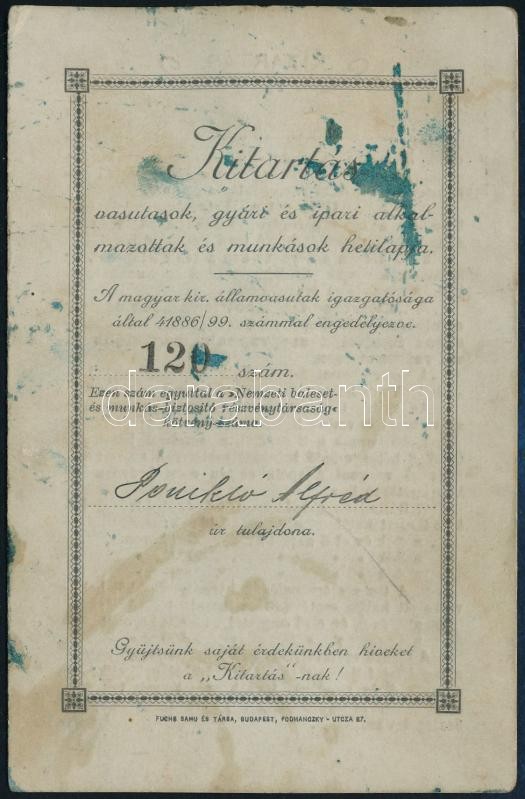 Kitartás
vasutasok, gyári és ipari alkal-
mazottak és munkások hetilapja.
A magyar kir. államvasutak igazgatósága
által 41886/99. számmal engedélyezve.
120 szám.
Ezen szám egyúttal a »Nemzeti baleset-
és munkás-biztosító részvénytársaság«
kötvény-száma
darabanth
Alfréd
úr tulajdona.
Gyüjtsünk saját érdekünkben hiveket
a „Kitartás"-nak!
FUCHS SAMU ÉS TÁRSA, BUDAPEST, PODMANICZKY-UTCZA 87.